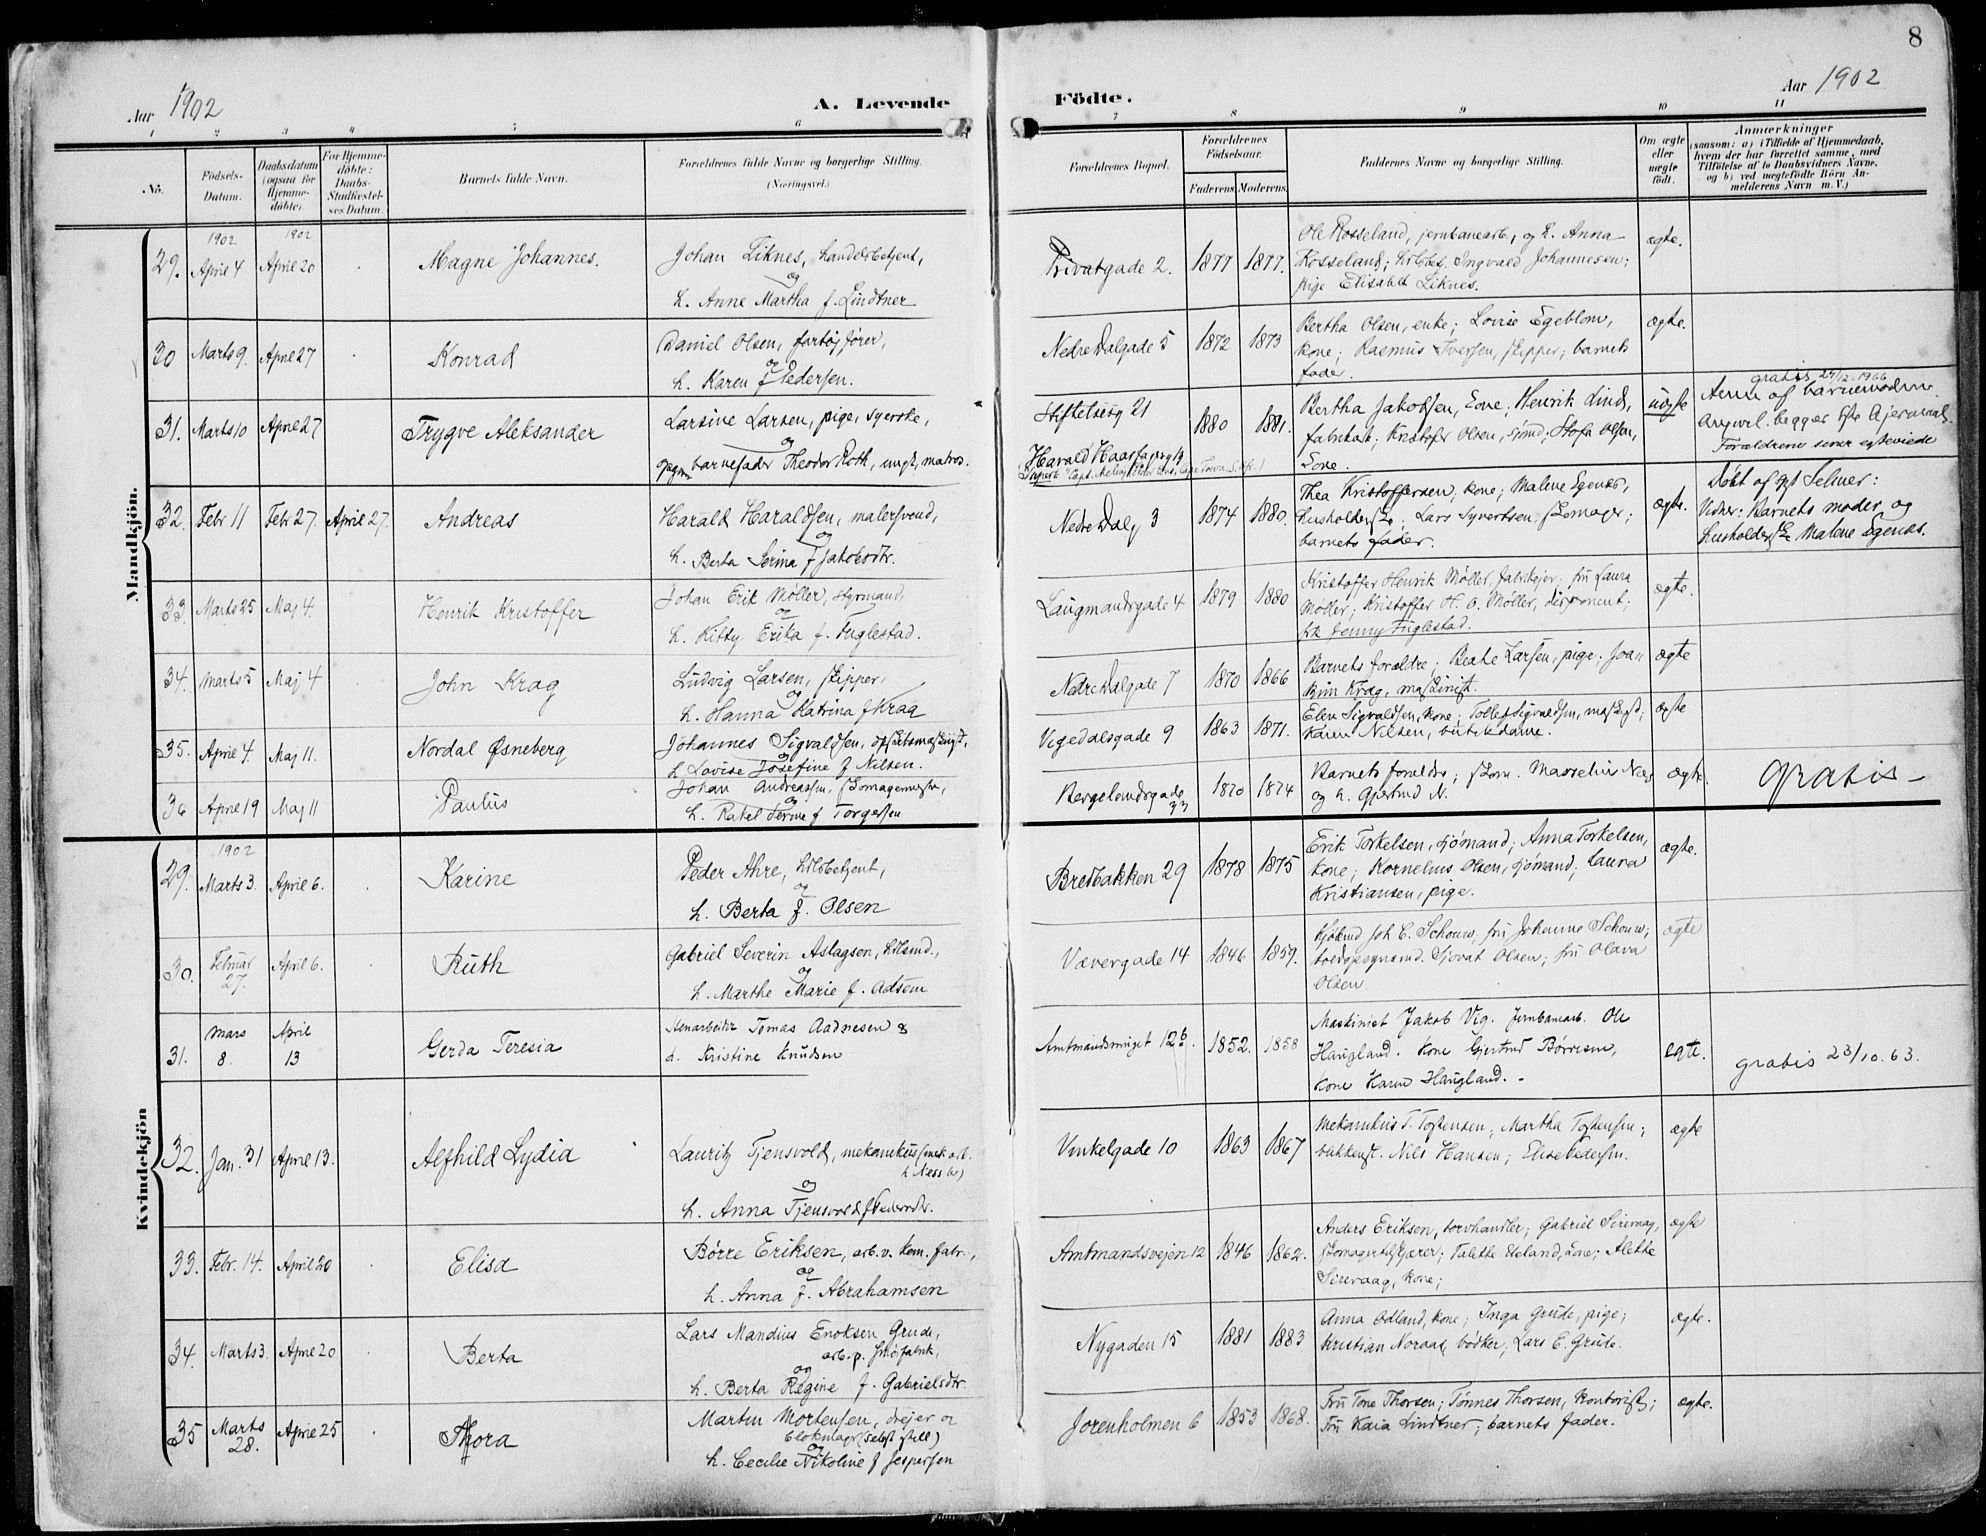 8
Aar 1902
A. Levende
Födte.
Aar 1902
1 2 3 4 5 6 7 8 9 10 11
No.
Födsels-
Datum.
Daabsdatum
(ogsaa for
Hjemme-
döbte).
For Hjemme-
döbte:
Daabs-
Stadfæstel-
ses Datum.
Barnets fulde Navn.
Forældrenes fulde Navne og borgerlige Stilling.
(Næringsvei.)
Forældrenes Bopæl.
Forældrenes
Födselsaar.
Faderens. Moderens.
Faddernes Navne og borgerlige Stilling.
Om ægte
eller
uægte
födt.
Anmærkninger
(saasom: a) i Tilfælde af Hjemmedaab,
hvem der har forrettet samme, med
Tilföielse af to Daabsvidners Navne.
og b) ved uægtefödte Börn An-
melderens Navn m. V.)
Mandkjön.
1902 1902
29. April 4 April 20 Magne Johannes.
Johan Liknes, handelsbetjent,
og
h. Anne Martha f. Lindtner
Privatgade 2. 1877 1877.
Ole Rosseland, jernbanearb., og h. Anna
Rosseland; hdlsbet. Ingvald Johannesen;
pige Elisabet Liknes.
ægte.
30 Marts 9. April 27 Konrad
Daniel Olsen, fartøjfører,
og
h. Karen f. Pedersen.
Nedre Dalgade 5 1872 1873
Bertha Olsen, enke; Lovise Egeblom,
kone; Rasmus Iversen, skipper; barnets
fader.
ægte.
31. Marts 10 April 27 Trygve Aleksander
Larsine Larsen, pige, syerske,
og
barnefader Theodor Roth, ungk, matros.
Stiftelsesg 21
Harald Haarfagersg 19
1880 1881.
Bertha Jakobsen, kone; Henrik Lind,
fabrikarb; Kristofer Olsen, sjømd; Stofa Olsen,
kone.
uægte
gratis 27/12-1966
Anm af barnemoderen.
Angivel. begges 1ste Lejermaal.
Forældrene senere egteviede
32. Febr 11 Febr 27. April 27. Andreas
Harald Haraldsen, malersvend,
og
h. Berta Serina f Jakobsdtr.
Nedre Dalg 3 1874 1880.
Thea Kristoffersen, kone; Malene Egenes,
husholderske; Lars Syvertsen skomager;
barnets fader.
ægte.
Døbt af Selmer:
Vidner: Barnets moder og
husholderske Malene Egenæs.
33. Marts 25 Maj 4. Henrik Kristoffer
Johan Erik Møller, styrmand,
og
h. Kitty Erika f. Fuglestad.
Laugmandsgade 4 1879 1880
Kristoffer Henrik Møller, fabrikejer; fru Laura
Møller; Kristoffer H. O. Møller, disponent;
frk Jenny Fuglestad.
ægte.
34. Marts 5 Maj 4 John Krag
Ludvig Larsen, skipper,
og
h. Hanna Katrina f Krag
Nedre Dalgade 7 1870 1866
Barnets forældre; Beate Larsen, pige; Joa-
kim Krag, maskinist.
ægte
35. April 4. Maj 11. Nordal Øsneberg
Johannes Sigvaldsen,
og
h Lovise Josefine f Nilsen.
Vegedalsgade 9 1863 1871.
Elen Sigvaldsen, kone; Tollef Sigvaldsen,
Karen Nilsen, butikdame.
ægte
36 April 19 Maj 11 Paulus
Johan Andreassen, skomagermester,
og
h. Rakel Serine f Torgersen
Bergelandsgade
33
1870 1874
Barnets forældre; Masselius Næs
og h. Gjertrud N.
ægte.
Gratis –
Kvindekjön
1902
29. Marts 3. April 6. Karine
Peder Ahre, hdlsbetjent,
og
h. Berta f. Olsen
Bredbakken 29 1878 1875
Erik Torkelsen, sjømand; Anna Torkelsen,
kone; Kornelius Olsen, sjømand; Laura
Kristiansen, pige.
ægte.
30. Februar
27. April 6. Ruth
Gabriel Severin Aslagsen, hdlsmd.,
og
h. Marthe Marie f. Adsem
Vævergade 14 1846 1859.
Kjøbmd Joh C. Schouw, fru Johanne Schouw;
toldopsynsmd. Sjovat Olsen; fru Olava
Olsen.
ægte
31. Mars
8. April
13 Gerda Teresia
Stenarbeider Tomas Aadnesen &
h. Kristine Knudsen
Amtmandsvniget 12b. 1852. 1858
Maskinist Jakob Vig. Jernbanearb. Ole
Haugland. Kone Gjertrud Børresen,
Kone Karen Haugland. –
egte.
gratis 23/10.63.
32. Jan. 31 April 13. Alfhild Lydia
Lauritz Tjensvold, mekanikus (mek arb.
og
h. Anna Tjensvold f Pedersdtr.
Vinkelgade 10 1863 1867
Mekanikus T. Tostensen; Martha Tostensen;
Nils Hansen; Elise Pedersen.
ægte
33. Febr. 14. April 20 Elisa
Børre Eriksen, arb. v. kem. fabr.,
og
h. Anna f. Abrahamsen
Amtmandsvejen 12 1846 1862.
Anders Eriksen, torvhandler; Gabriel Sirevaag,
skomagertilskjærer; Talette Eseland, kone; Alette
Sirevaag, kone;
ægte
34. Marts 3. April 20 Berta
Lars Mandius Enoksen Grude,
arb. p. skofabrik,
og
h. Berta Regine f. Gabrielsdtr.
Nygaden 15 1881 1883
Anna Odland, kone; Inga Grude, pige;
Kristian Noraas, bødker; Lars E. Grude.
ægte.
35 Marts
28. April 25 Thora
Martin Mortensen, drejer &
blokmager (selvst. still)
og
h. Cecilie Nikoline f Jespersen
Jorenholmen 6 1853 1868.
Fru Tone Thorsen; Tønnes Thorsen, kontorist;
Fru Kaia Lindtner; barnets fader.
ægte.